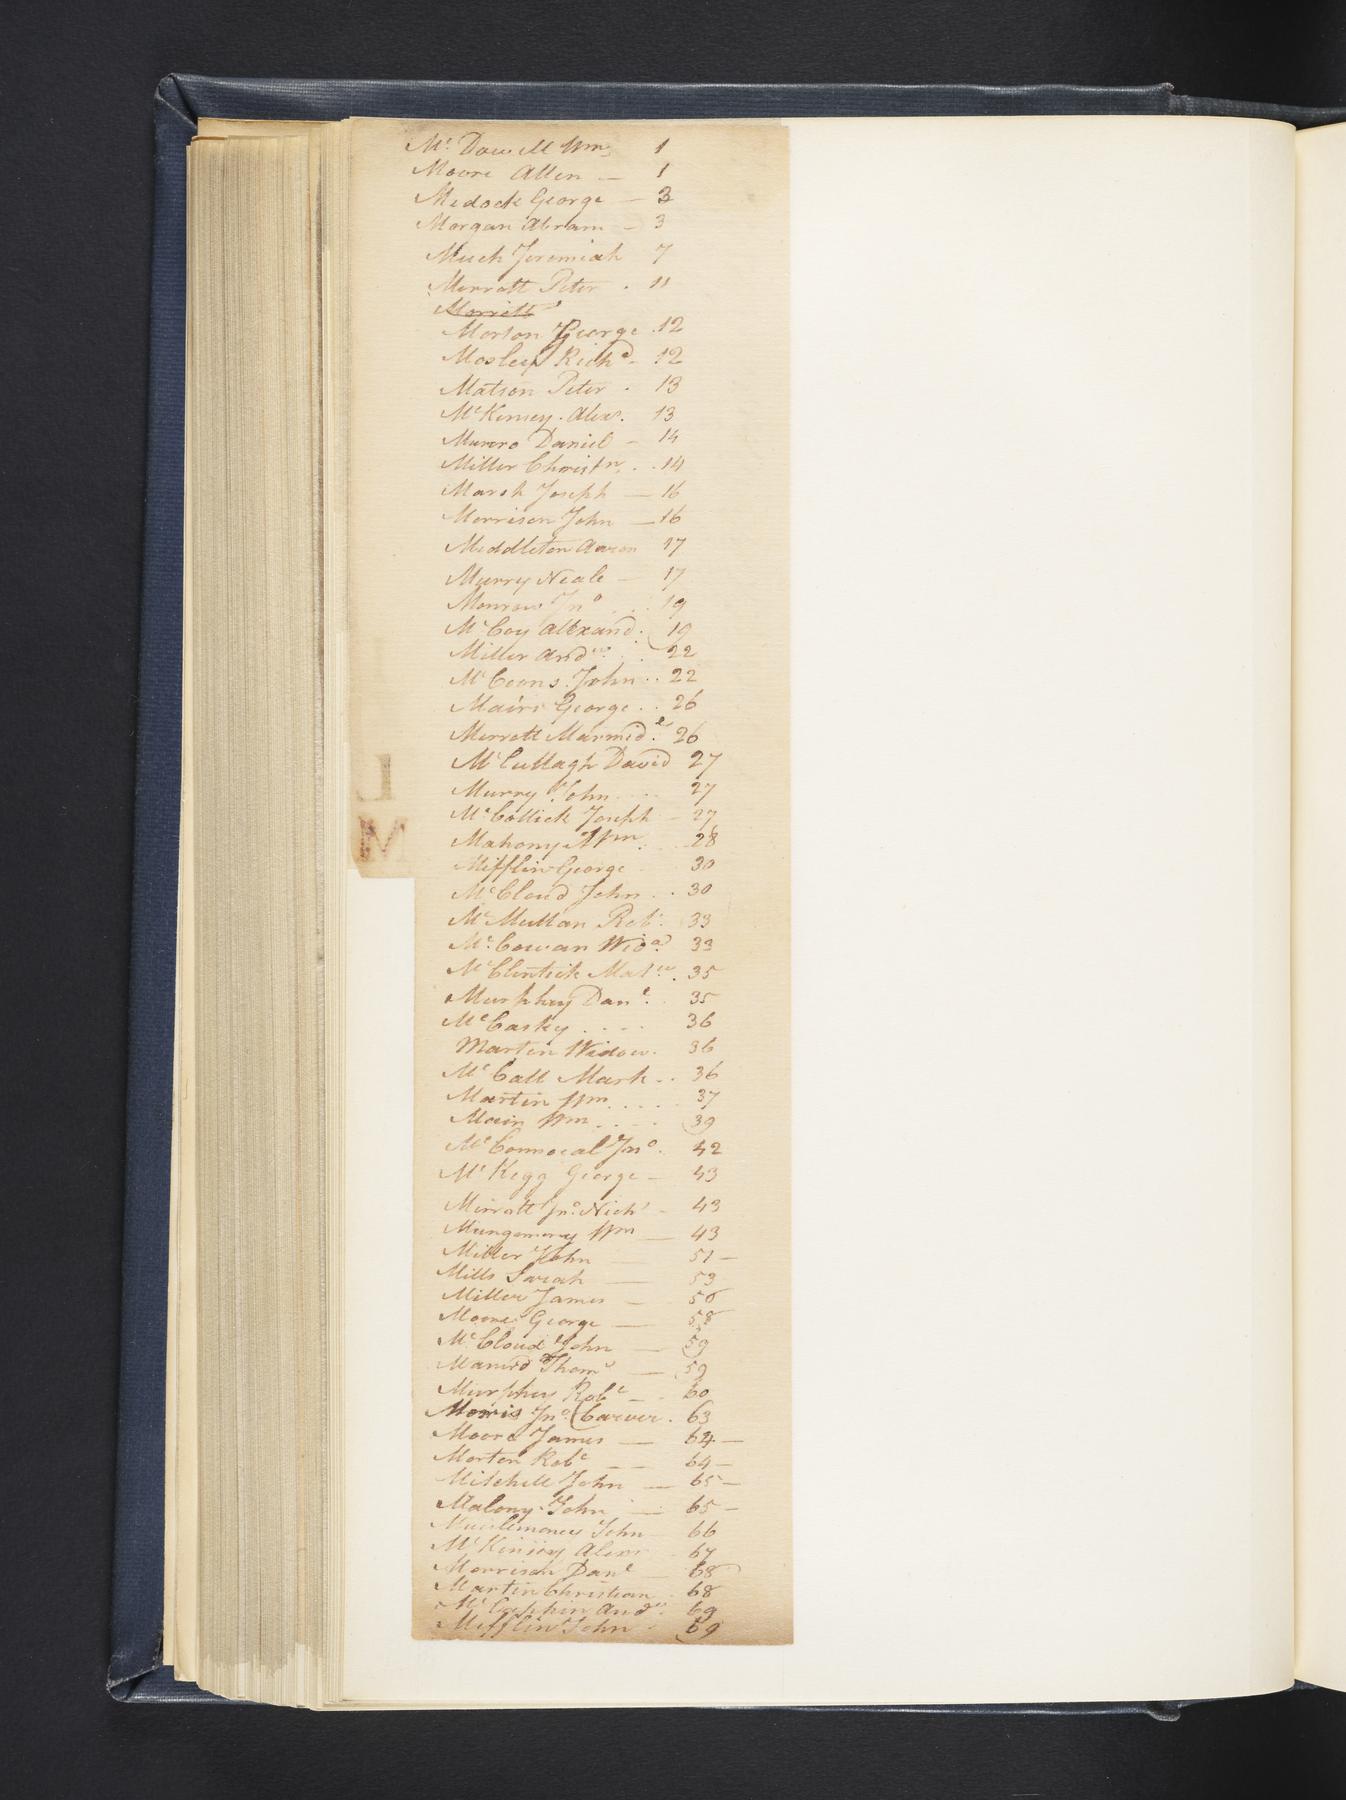 Mc Dowell Wm 1
Moore Allen — 1
Medock George — 3
Morgan Abram — 3
Much Jeremiah 7
Merratt Peter . 11
Merratt
Morton George . 12
Mosley Richd — 12
Matson Peter . 13
McKinsey . Alexr. 13
Munro Daniel — 14
Miller Christn . . 14
Marsh Joseph — 16
Morrison John — 16
Middleton Aaron 17
Murry Neale — 17
Monrow Jno . . . 19
McCoy Alexand. 19
Miller Andw . . 22
McCoons . John . . 22
Mairs George . . 26
Merratt Marmide. 26
McCullagh David 27
Murry John . . . 27
McCollick Joseph — 27
Mahony Wm . . 28
Mifflin George 30
McCloud John . . 30
McMullan Robt. 33
Mc.Cowan Wido. 33
McClintick Matw. 35
Murphey Danl. . 35
McCasky . . . . 36
Martin Widow. 36
McCall Mark . . 36
Martin Wm . . . . 37
Main Wm . . . . 39
McConnocal Jno. 42
McKegg George — 43
Mirratt Jno. Nichs — 43
Mungomery Wm — 43
Miller John — 51 —
Mills Sarah — 53
Miller James — 56
Moore George — 58
McCloud John — 59
Thoms — 59
Murphey Robt — 60
Morris Jno (Carver . 63
Moore James — 64 —
Morton Robt — — 64 —
Mitchell John — 65 —
Malony John — 65 —
John — 66
McKinsey Alexr 67
Morrison Danl — 68
Martin Christian . 68
Andw. 69
Mifflin John . 69
L
M